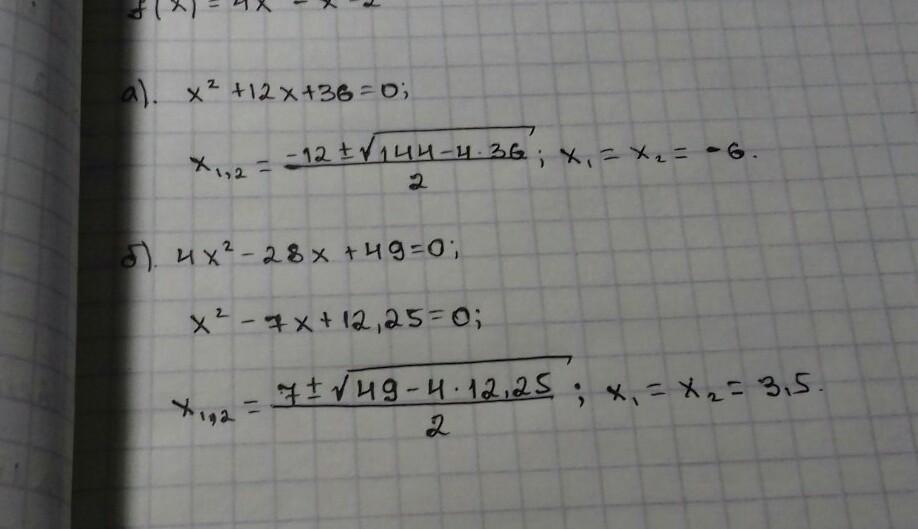 f(x) = 4x - x - 2
а). x² + 12x + 36 = 0;
x₁,₂ = (-12 ± √(144 - 4 · 36)) / 2; x₁ = x₂ = -6.
б). 4x² - 28x + 49 = 0;
x² - 7x + 12,25 = 0;
x₁,₂ = (7 ± √(49 - 4 · 12,25)) / 2; x₁ = x₂ = 3,5.